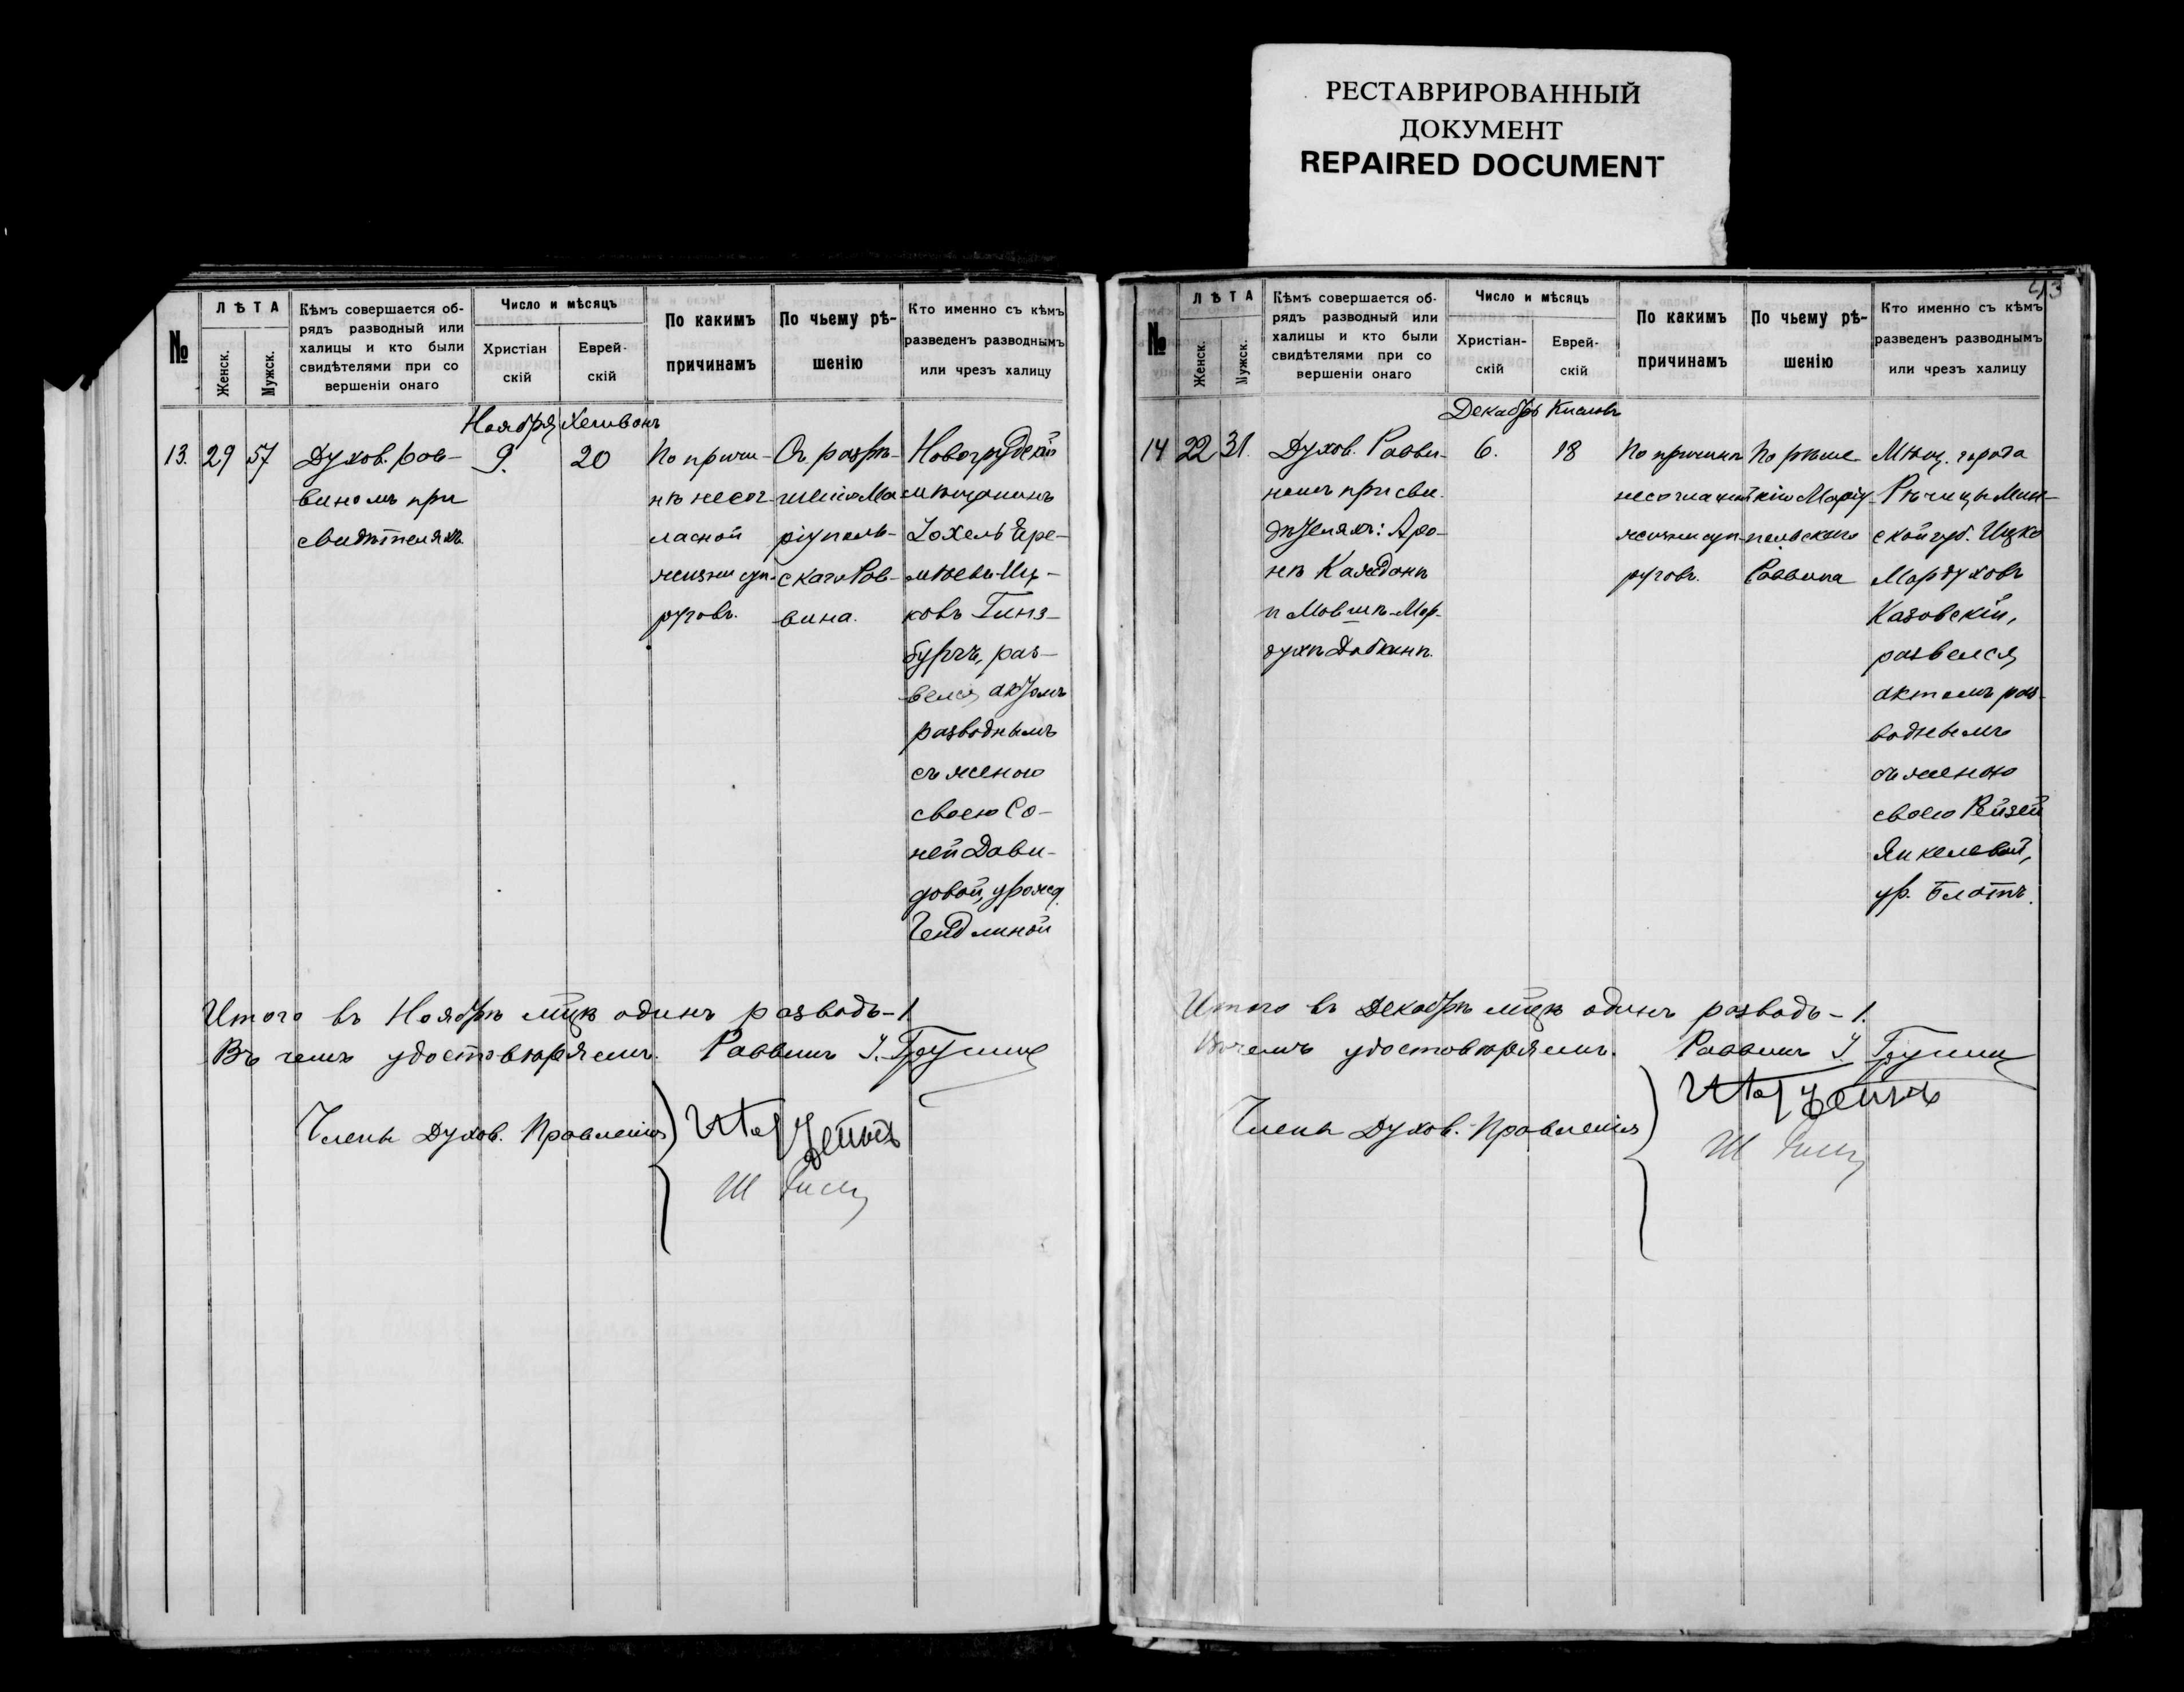 РЕСТАВРИРОВАННЫЙ
ДОКУМЕНТ
REPAIRED DOCUMENT
№
ЛѢТА
Женск.
Мужск.
Кѣмъ совершается об-
рядъ разводный или
халицы и кто были
свидѣтелями при со
вершеніи онаго
Число и мѣсяцъ
Христіан
скій
Еврей-
скій
По какимъ
причинамъ
По чьему рѣ-
шенію
Кто именно съ кѣмъ
разведенъ разводнымъ
или чрезъ халицу
Ноября Хешвонъ
13. 29 57
Духов. рав-
виномъ при
свидѣтеляхъ
9.
20
По причи-
нѣ несог-
ласной
жизни суп-
руговъ.
Съ разрѣ-
шенія Ма
ріуполь-
скаго Рав-
вина.
Новогрудскій
мѣщанинъ
Іохель Ере-
мѣевъ-Иц-
ковъ Гинз-
бургъ, раз-
велся актомъ
разводнымъ
съ женою
своею Со-
ней Дави-
довой, урожд.
Гендлиной
Итого въ Ноябрѣ мцѣ одинъ разводъ - 1
Въ чемъ удостовѣряемъ. Раввинъ
Члены Духов. Правленія
43
№
ЛѢТА
Женск.
Мужск.
Кѣмъ совершается об-
рядъ разводный или
халицы и кто были
свидѣтелями при со
вершеніи онаго
Число и мѣсяцъ
Христіан-
скій
Еврей-
скій
По какимъ
причинамъ
По чьему рѣ-
шенію
Кто именно съ кѣмъ
разведенъ разводнымъ
или чрезъ халицу
Декабрь Кислевъ
14 22 31.
Духов. Равви-
номъ при сви-
дѣтеляхъ: Аро-
нѣ Каждань
и Мовшѣ-Мор-
духѣ Добкинѣ.
6.
18
По причинѣ
несогласной
жизни суп-
руговъ.
По рѣше
нію Маріу-
польскаго
Раввина
Мѣщ. города
Рѣчицы Мин-
ской губ. Ицко
Мордуховъ
Казовскій,
развелся
актомъ раз-
воднымъ
съ женою
своею Рейзей
Янкелевой,
ур. Блотъ.
Итого въ Декабрѣ мцѣ одинъ разводъ - 1.
Въ чемъ удостовѣряемъ. Раввинъ
Члены Духов. Правленія